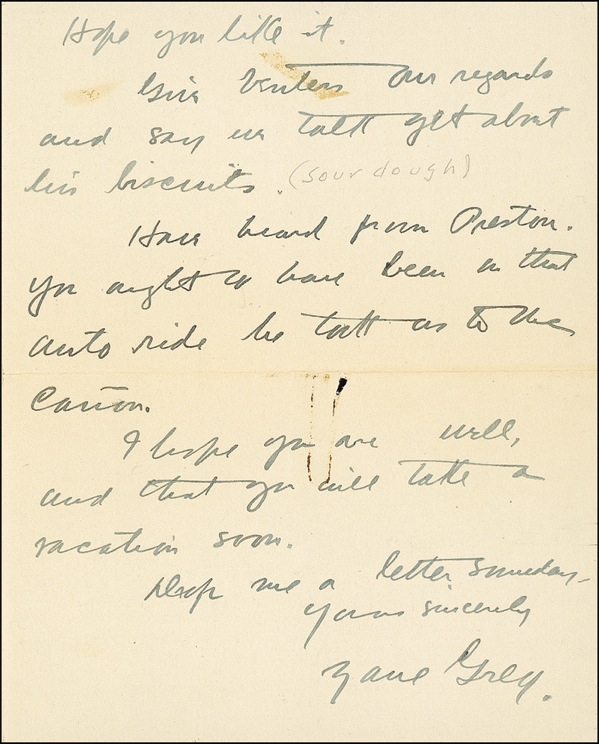 Hope you like it.
Give Venters our regards
and say we talk yet about
his biscuits. (sourdough)
Have heard from Preston.
You ought to have been on that
auto ride he took us to the
Cañon.
I hope you are well,
and that you will take a
vacation soon.
Drop me a letter someday.
Yours sincerely
Zane Grey.